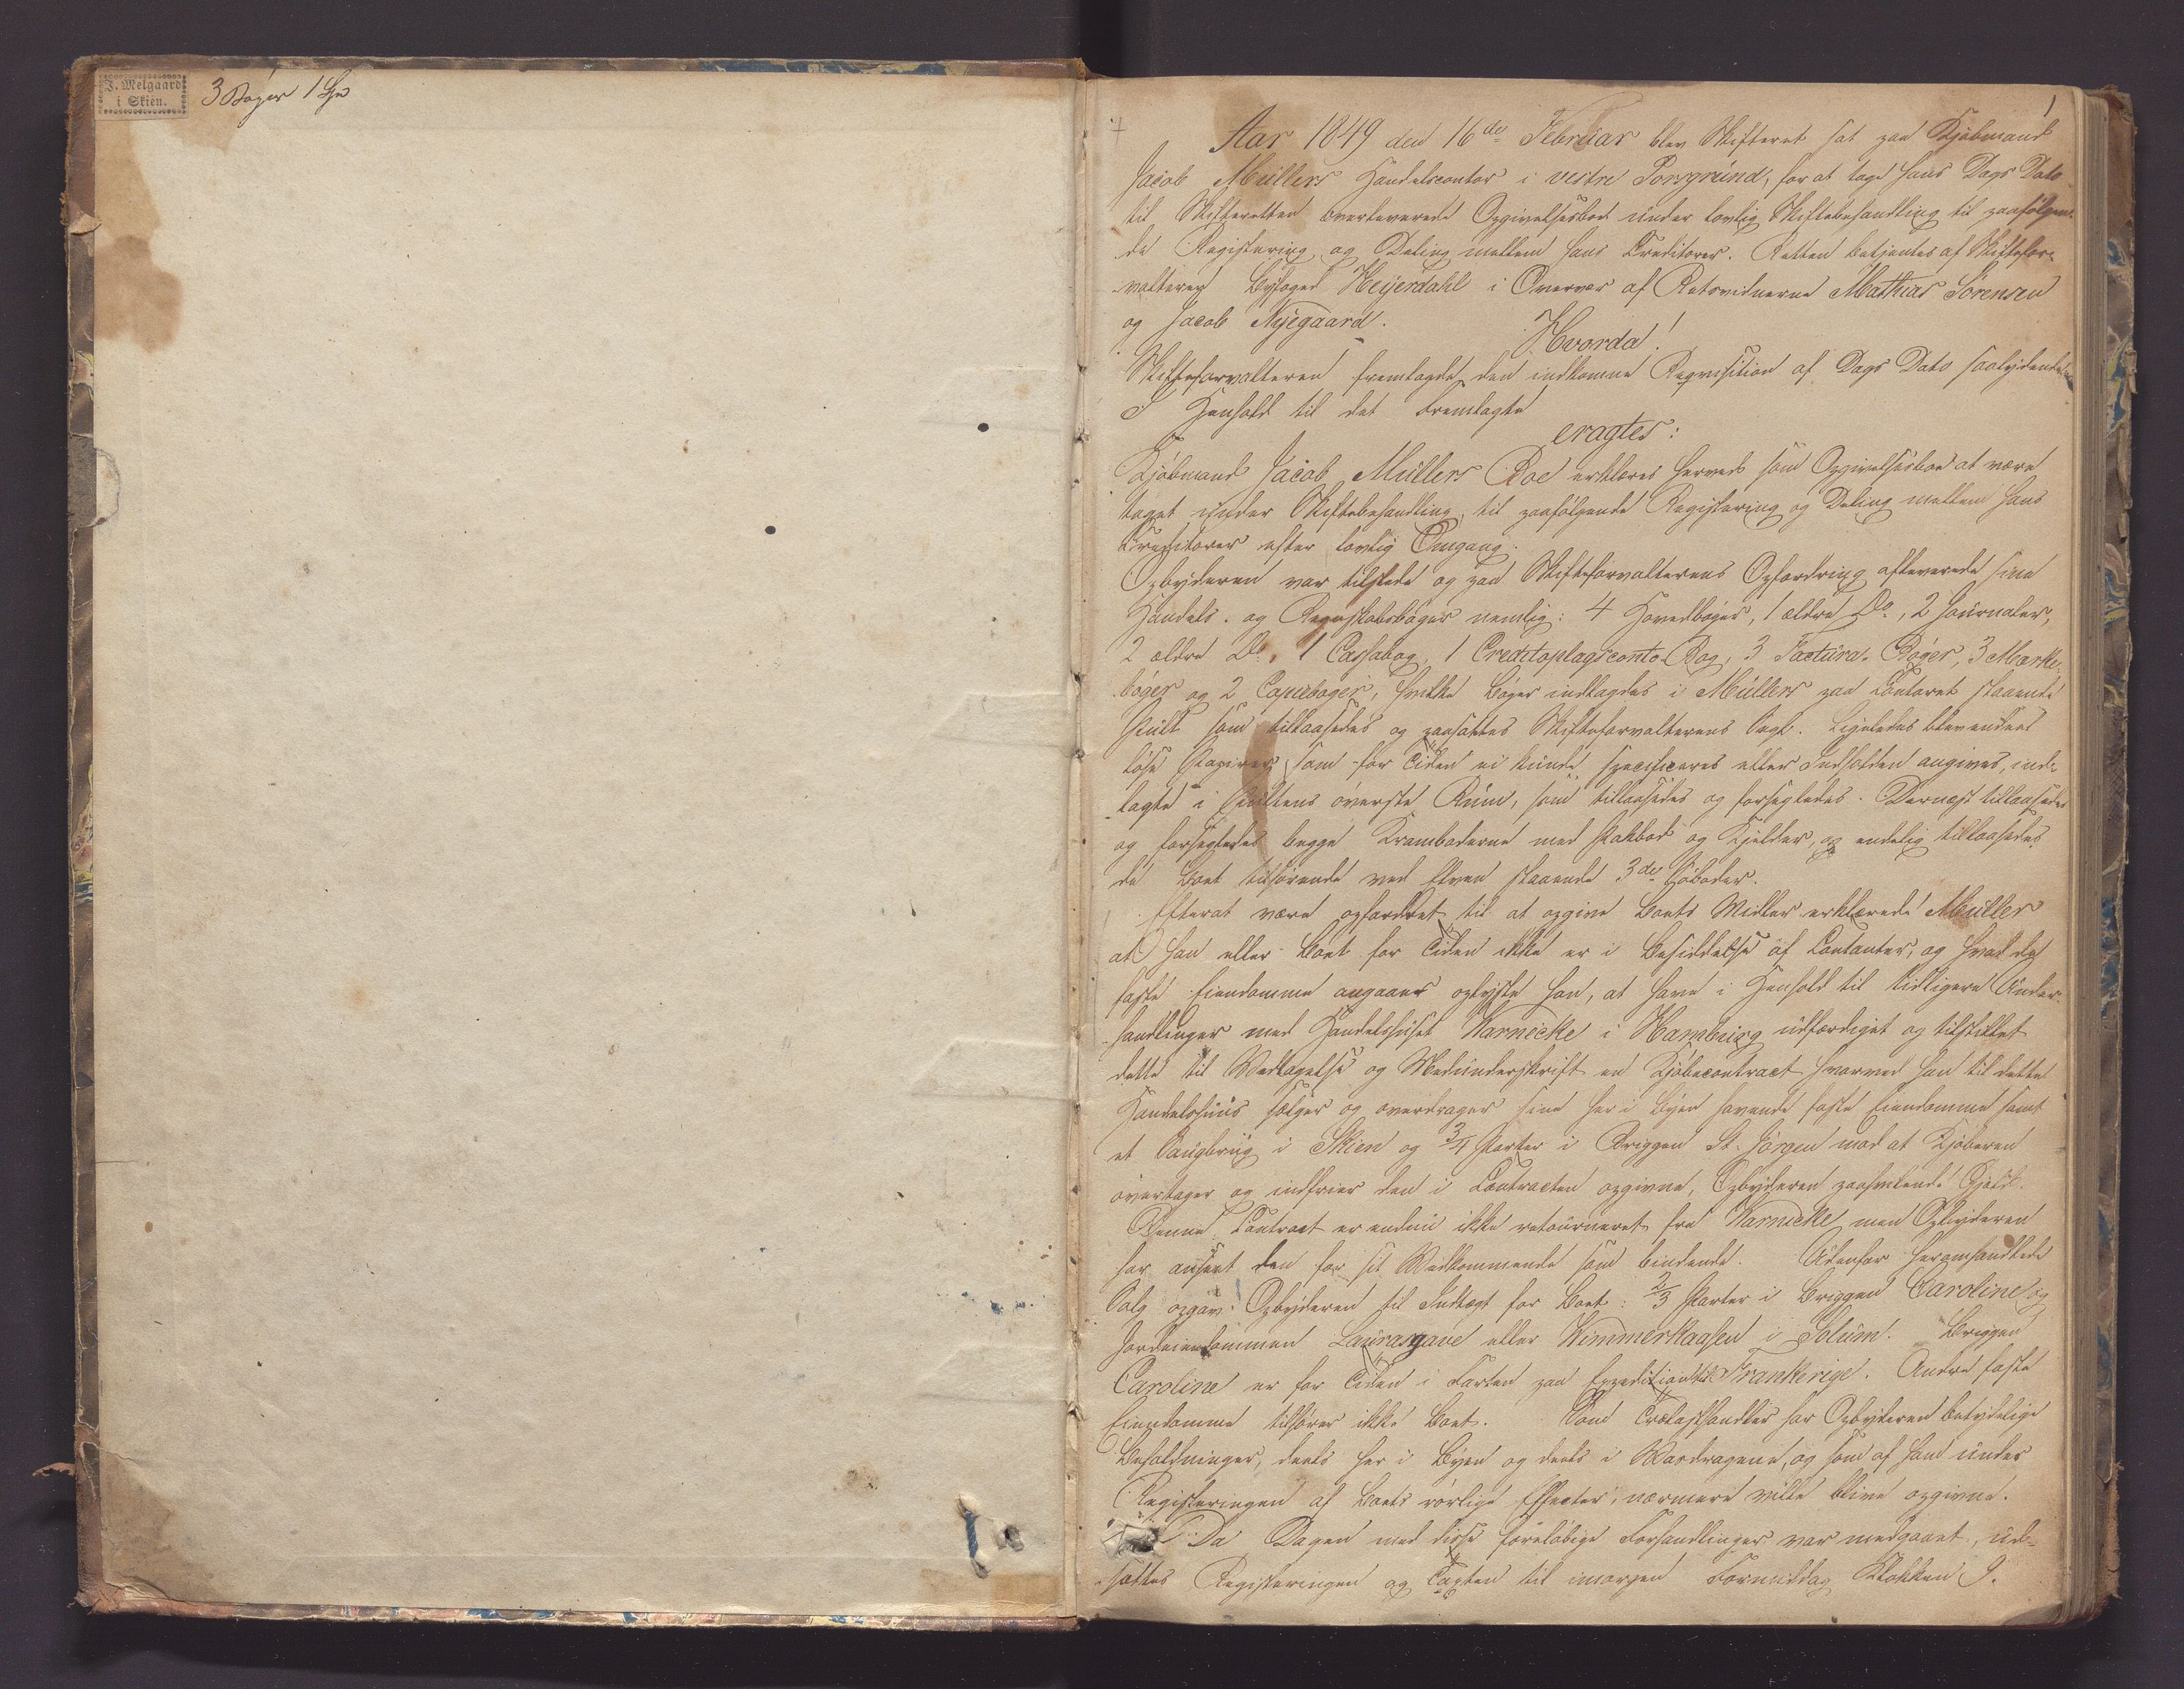 J. Melgaard
i Skien.
3 Bøger 1
1
Aar 1849 den 16de Februar blev Skifteret sat paa Kjøbmand
Jacob Müllers Handelscontor i vestre Porsgrund, for at tage hans Dags Dato
til Skifteretten overleverede Opgivelsesbo under lovlig Skiftebehandling til paafølgen-
de Registering og Deling mellem hans Creditorer. Retten betjentes af Skiftefor-
valteren Byfoged Heijerdahl i Overvær af Retsvidnerne Mathias Sørensen
og Jacob Nyegaard.
Hvorda!
Skifteforvalteren fremlagde den indkomne Reqvisition af Dags Dato saalydende
I Henhold til det Fremlagte
eragtes:
Kjøbmand Jacob Müllers Boe erklæres herved som Opgivelsesboe at være
taget under Skiftebehandling til paafølgende Registering og Deling mellem hans
Creditorer efter lovlig Omgang.
Opbyderen var tilstede og paa Skifteforvalterens Opfordring afleverede sine
Handels- og Regnskabsbøger nemlig: 4 Hovedbøger, 1 ældre Do, 2 Journaler,
2 ældre Do, 1 Cassabog, 1 Creditoplagsconto-Bog, 3 Factura-Bøger, 3 Mærke-
bøger og 2 Copiebøger, hvilke Bøger indlagdes i Müllers paa Contoret staaende
Pult som tillaasedes og paasattes Skifteforvalterens Segl. Ligeledes bleve endeel
løse Papirer, som for Tiden ei kunde specificeres eller Indholden angives, ind-
lagte i Pultens øverste Rum, som tillaasedes og forsegledes. Dernæst tillaasedes
og forsegledes begge Kramboderne med Pakbod og Kjelder, og endelig tillaasedes
de Boet tilhørende ved Elven staaende 3de Søboder.
Efterat være opfordret til at opgive Boets Midler erklærede Müller
at han eller Boet for Tiden ikke er i Besiddelse af Contanter, og hvad de
faste Eiendomme angaaer oplyste han, at have i Henhold til tidligere Under-
handlinger med Handelshuset Warnecke i Hamburg udfærdiget og tilstillet
dette til Vedtagelse og Medunderskrift en Kjøbecontract hvorved han til dette
Handelshuus sælger og overdrager sine her i Byen havende faste Eiendomme samt
et Saugbrug i Skien og 3/4 Parter i Briggen St. Jørgen mod at Kjøberen
overtager og indfrier den i Contracten opgivne, Opbyderen paahvilende Gjæld.
Denne Contract er endnu ikke retourneret fra Warnecke, men Opbyderen
har anseet den for sit Vedkommende som bindende. Udenfor heromhandlede
Salg opgav Opbyderen til Indtægt for Boet: 2/3 Parter i Briggen Caroline og
Jordeiendommen Laurasgave eller Kimmerhaasen i Solum. Briggen
Caroline er for Tiden i Farten paa Expedition til Frankerige. Andre faste
Eiendomme tilhører ikke Boet. Som Trælasthandler har Opbyderen betydelige
Beholdninger, deels her i Byen og deels i Vasdragene, og som af ham under
Registeringen af Boets rørlige Effecter, nærmere ville blive opgivne.
Da Dagen med disse foreløbige Forhandlinger var medgaaet, ud-
sattes Registeringen og Taxten til imorgen Formiddag Klokken 9.